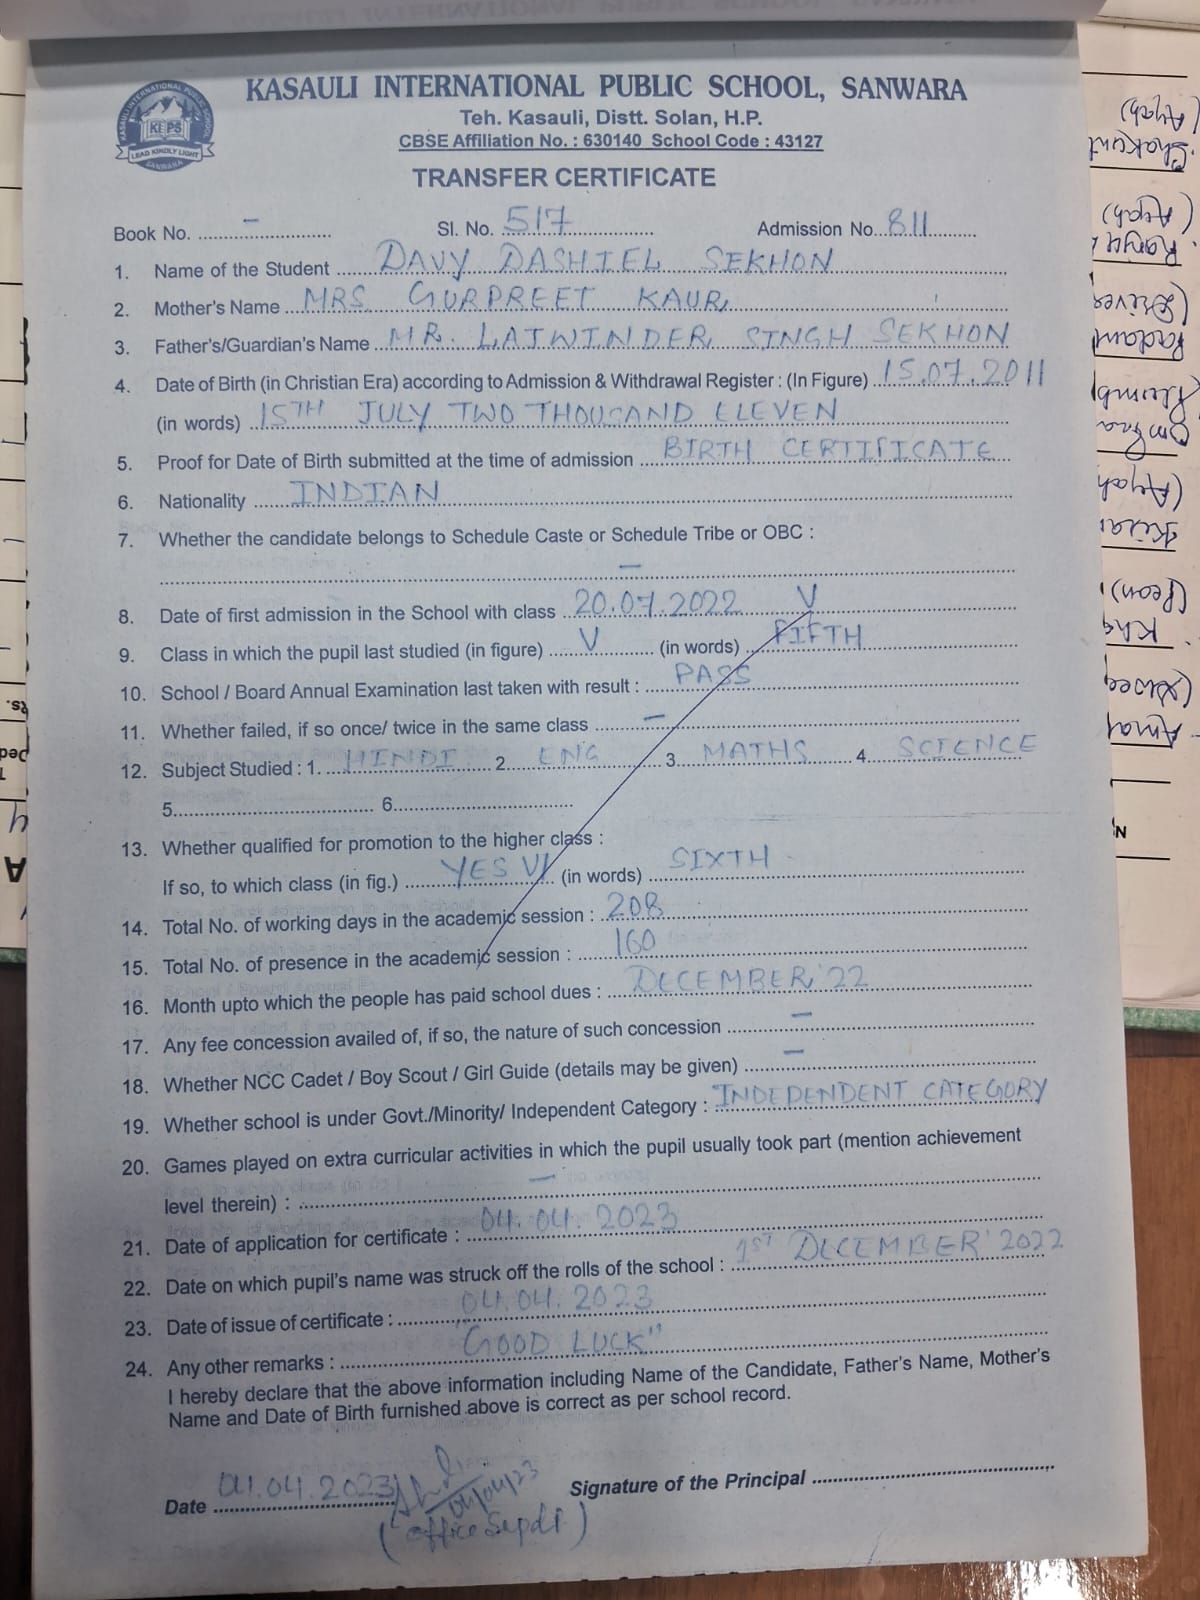 KASAULI INTERNATIONAL PUBLIC SCHOOL, SANWARA
Teh. Kasauli, Distt. Solan, H.P.
CBSE Affiliation No. : 630140 School Code : 43127
KASAULI INTERNATIONAL PUBLIC SCHOOL
KIPS
LEAD KINDLY LIGHT
SANWARA
TRANSFER CERTIFICATE
Book No. – Sl. No. 517 Admission No. 811
1. Name of the Student DAVY DASHIEL SEKHON
2. Mother's Name MRS. GURPREET KAUR
3. Father's/Guardian's Name MR. LAJWINDER SINGH SEKHON
4. Date of Birth (in Christian Era) according to Admission & Withdrawal Register : (In Figure) 15.07.2011
(in words) 15TH JULY TWO THOUSAND ELEVEN
5. Proof for Date of Birth submitted at the time of admission BIRTH CERTIFICATE
6. Nationality INDIAN
7. Whether the candidate belongs to Schedule Caste or Schedule Tribe or OBC :
–
8. Date of first admission in the School with class 20.07.2022 V
9. Class in which the pupil last studied (in figure) V (in words) FIFTH
10. School / Board Annual Examination last taken with result : PASS
11. Whether failed, if so once/ twice in the same class –
12. Subject Studied : 1. HINDI 2. ENG 3. MATHS 4. SCIENCE
5. 6.
13. Whether qualified for promotion to the higher class :
If so, to which class (in fig.) YES VI (in words) SIXTH
14. Total No. of working days in the academic session : 208
15. Total No. of presence in the academic session : 160
16. Month upto which the people has paid school dues : DECEMBER'22
17. Any fee concession availed of, if so, the nature of such concession –
18. Whether NCC Cadet / Boy Scout / Girl Guide (details may be given) –
19. Whether school is under Govt./Minority/ Independent Category : INDEPENDENT CATEGORY
20. Games played on extra curricular activities in which the pupil usually took part (mention achievement
level therein) : –
21. Date of application for certificate : 04.04.2023
22. Date on which pupil's name was struck off the rolls of the school : 1ST DECEMBER'2022
23. Date of issue of certificate : 04.04.2023
24. Any other remarks : "GOOD LUCK"
I hereby declare that the above information including Name of the Candidate, Father's Name, Mother's
Name and Date of Birth furnished above is correct as per school record.
Date 04.04.2023 Signature of the Principal
04/04/23
(Office Supdt)